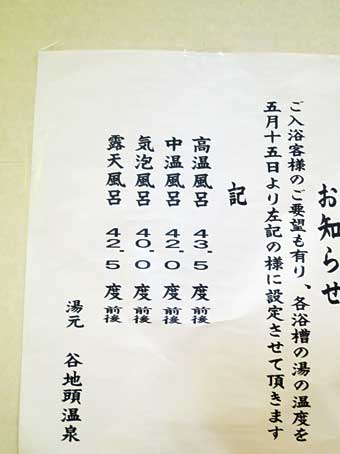 お知らせ
ご入浴客様のご要望も有り、各浴槽の湯の温度を
五月十五日より左記の様に設定させて頂きます
記
高温風呂 43.5 度 前後
中温風呂 42.0 度 前後
気泡風呂 40.0 度 前後
露天風呂 42.5 度 前後
湯元 谷地頭温泉